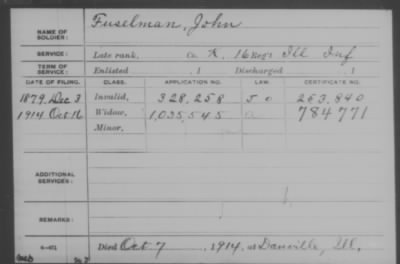 NAME OF SOLDIER: Fuselman, John
SERVICE: Late rank, Co. K, 16 Reg't Ill Inf
TERM OF SERVICE: Enlisted , 1 Discharged , 1
DATE OF FILING. CLASS. APPLICATION NO. LAW. CERTIFICATE NO.
1879 Dec 3 Invalid, 328,258 263,840
1914 Oct 16 Widow, 1,035,545 784771
Minor,
ADDITIONAL SERVICES:
REMARKS:
Died Oct 7, 1914, at Danville, Ill.